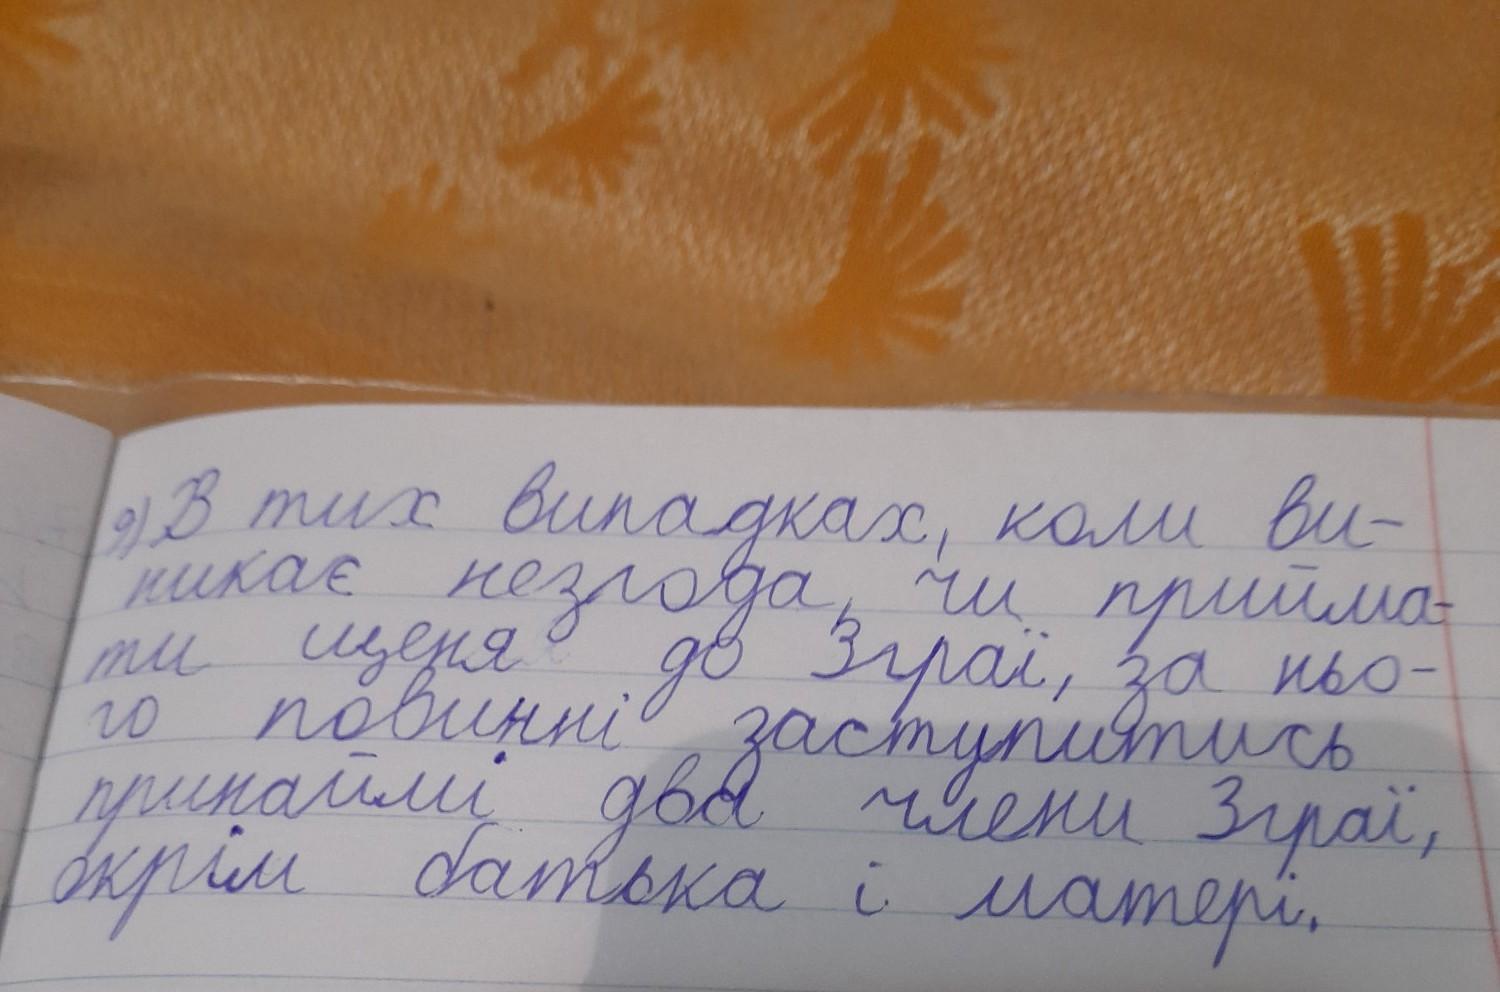 9) В тих випадках, коли ви-
никає незгода, чи прийма-
ти щеня до Зграї, за ньо-
го повинні заступитись
принаймі два члени Зграї,
окрім батька і матері.